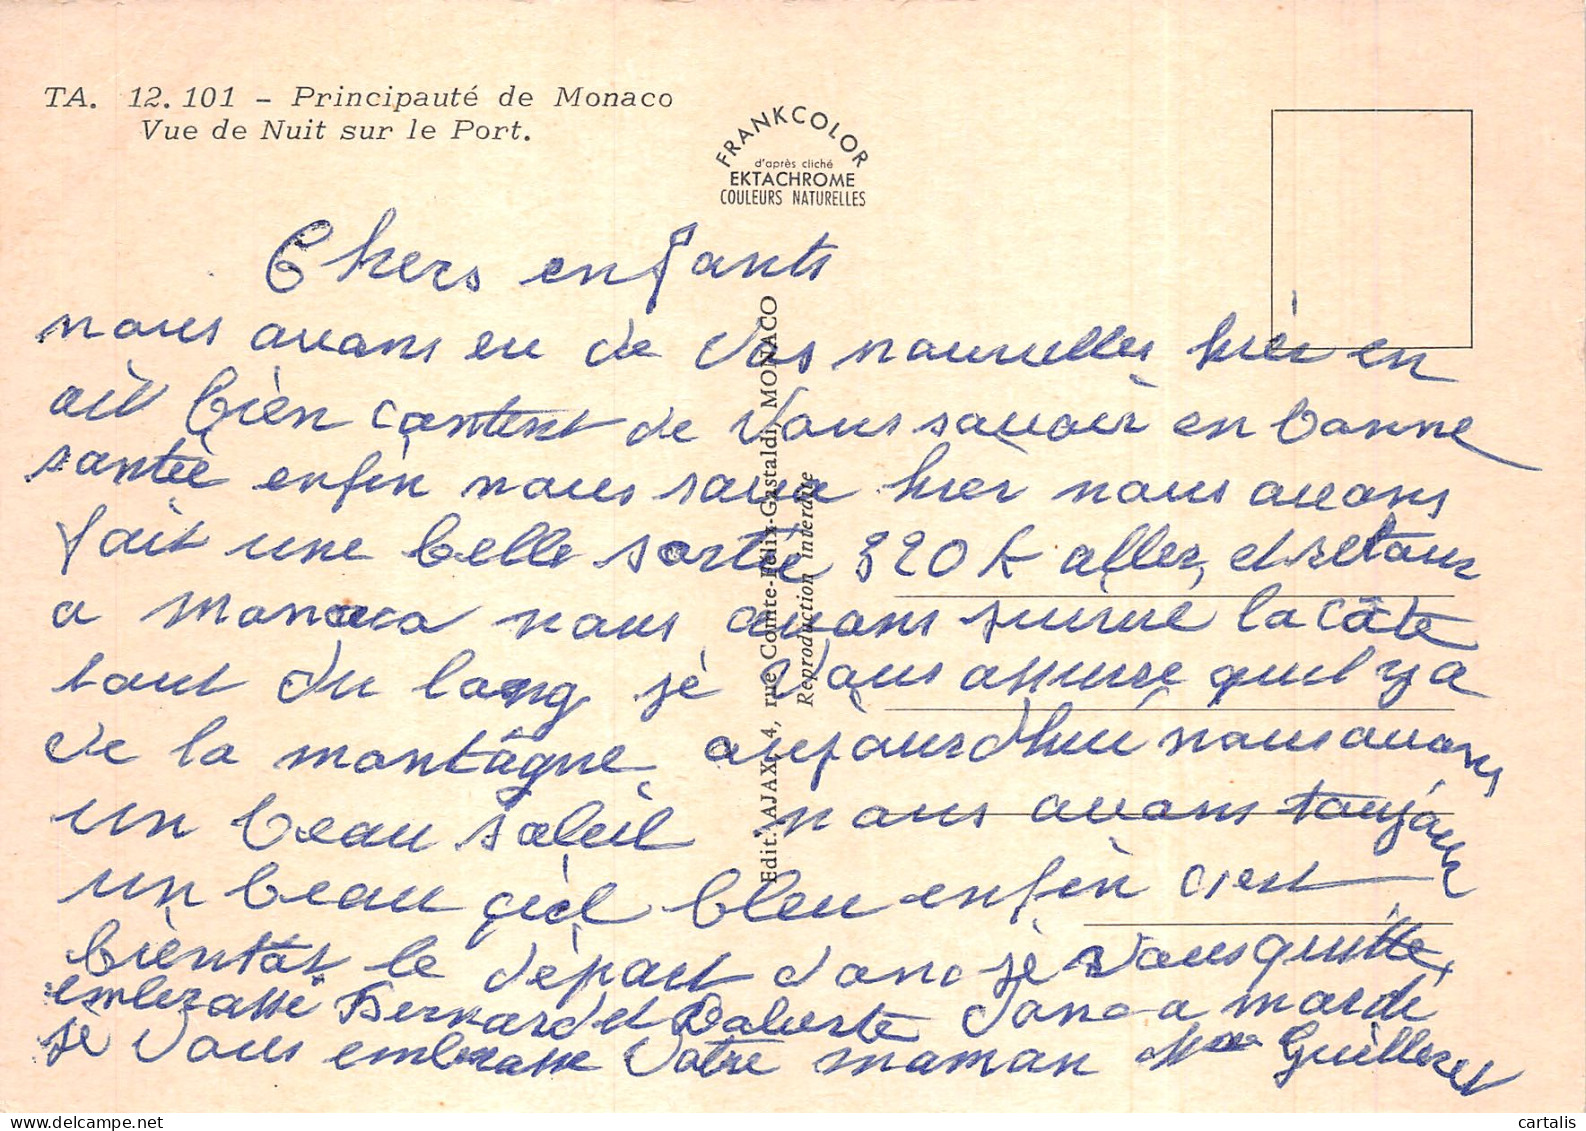 TA. 12.101 - Principauté de Monaco
Vue de Nuit sur le Port.
FRANKCOLOR
d'après cliché
EKTACHROME
COULEURS NATURELLES
Edit. AJAX, 4, rue Comte-Félix-Gastaldi, MONACO
Reproduction interdite
Chers enfants
nous avons eu de vos nouvelles hièr en
ait bièn content de vous savoir en bonne
santée enfin nous sava hièr nous avons
fait une belle sortie 320 k aller, et retour
a Monaco nous avons suivie la côte
tout du long jè vous assure quil y a
de la montâgne aujourdhui nous avons
un beau soleil nous avons toujours
un beau çièl bleu enfin c'est
bièntôt le dèpart donc jè vous quitte,
embrasse Bernard et donc a mardi
jè vous embrasse votre maman Mme Guilleret
cartalis